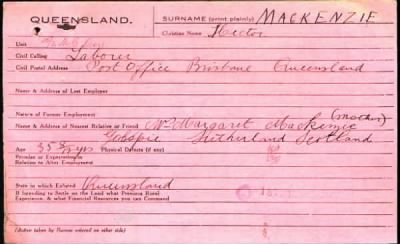 QUEENSLAND. SURNAME (print plainly) MACKENZIE
Christian Name Hector
Unit
Civil Calling Laborer
Civil Postal Address Post Office Brisbane Queensland
Name & Address of Last Employer
Nature of Former Employment
(Mother)
Name & Address of Nearest Relative or Friend Mrs Margaret Mackenzie
Golspie Sutherland Scotland
Age 35 yrs Physical Defects (if any)
Promise or Expectation in
Relation to After Employment
State in which Enlisted Queensland
If Intending to Settle on the Land what Previous Rural
Experience, & what Financial Resources you can Command
(Action taken by Bureau entered on other side)